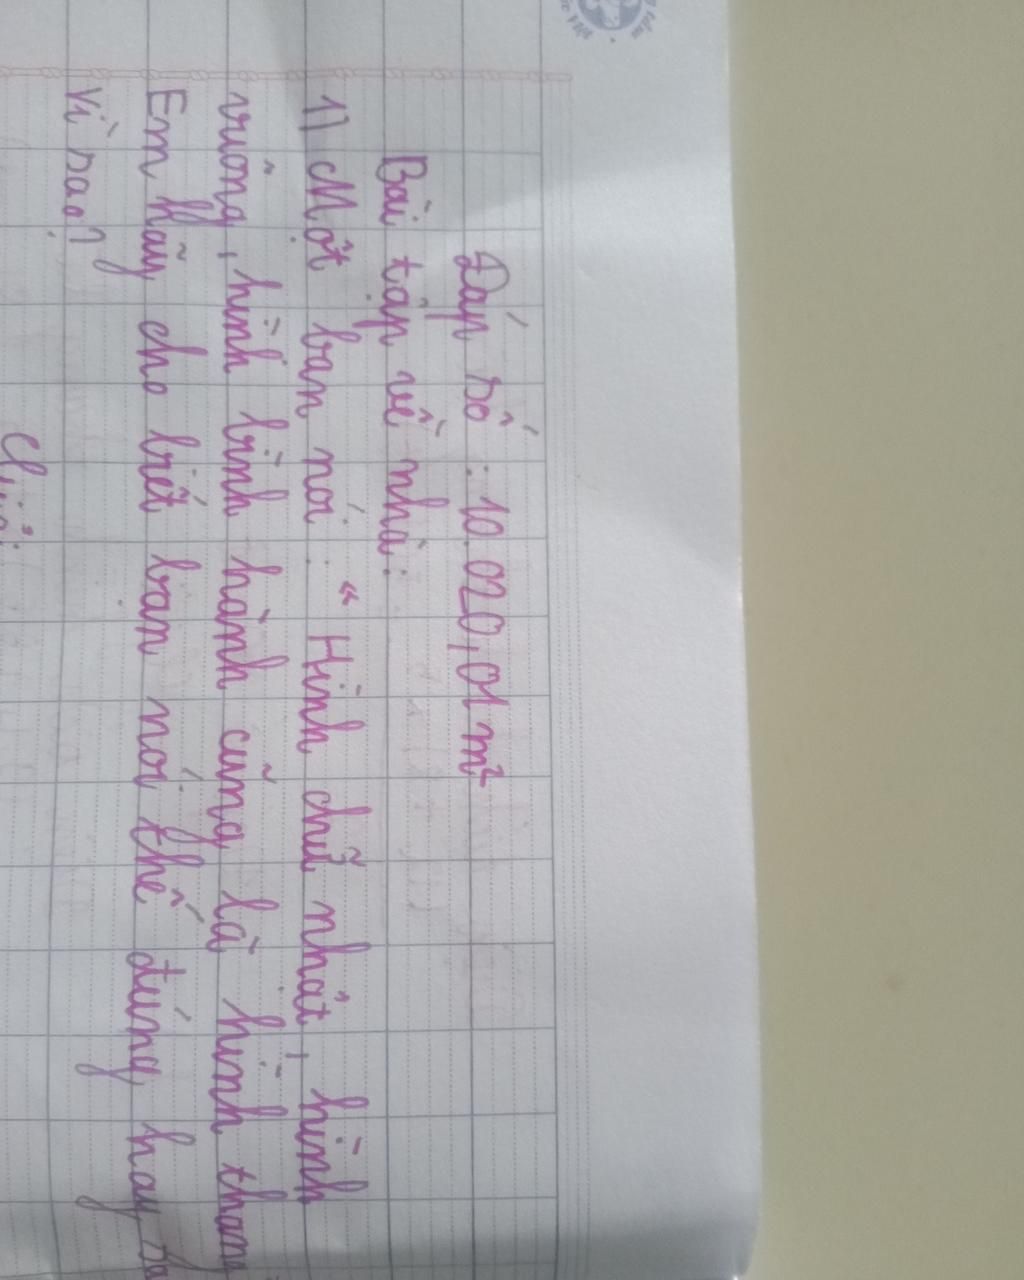 Đáp số : 10.020,01 m²
Bài tập về nhà :
1) Một bạn nói : “ Hình chữ nhật, hình
vuông, hình bình hành cũng là hình thang
Em hãy cho biết bạn nói thế đúng hay
Vì sao?